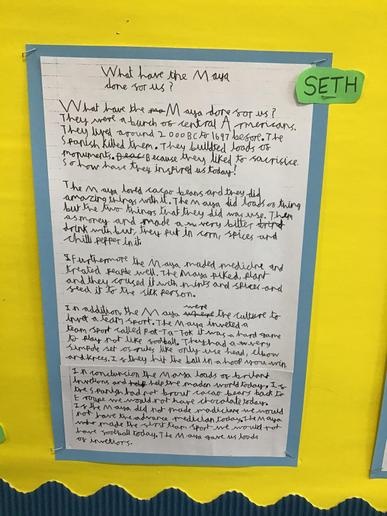 What have the Maya
done for us?
SETH
What have the Maya done for us?
They were a bunch of central Americans.
They lived around 2000BC to 1697 before. The
Spanish killed them. They builted loads of
monuments. Because they liked to sacrifice.
So how have they inspired us today?
The Maya loved cacao beans and they did
amazing things with it. The Maya did loads of thing
but the two things that they did was use. Then
as money and made a very bitter
drink with but, they put in corn, spices and
chilli pepper in it.
Furthermore the Maya maded medicine and
treated people well. The Maya picked, plant
and they crused it with mints and spices and
feed it to the sick person.
In addition the Maya were the culture to
invent a team sport. The Maya inveted a
team sport called Pok-Ta-Tok it was a hard game
to play not like football. They had a very
simple set of rules like only use head, elbow
and knees. If they hit the ball in a hoop you win
In conclusion the Maya loads of briliant
invetions and help the moden world today. If
the Spanish had not brout cacao beans back to
Europe we would not have chocolate today.
If the Maya did not made madicine we would
not have the advance medician today. The Maya
who made the first team sport we would not
have football today. The Maya gave us loads
of invetions.